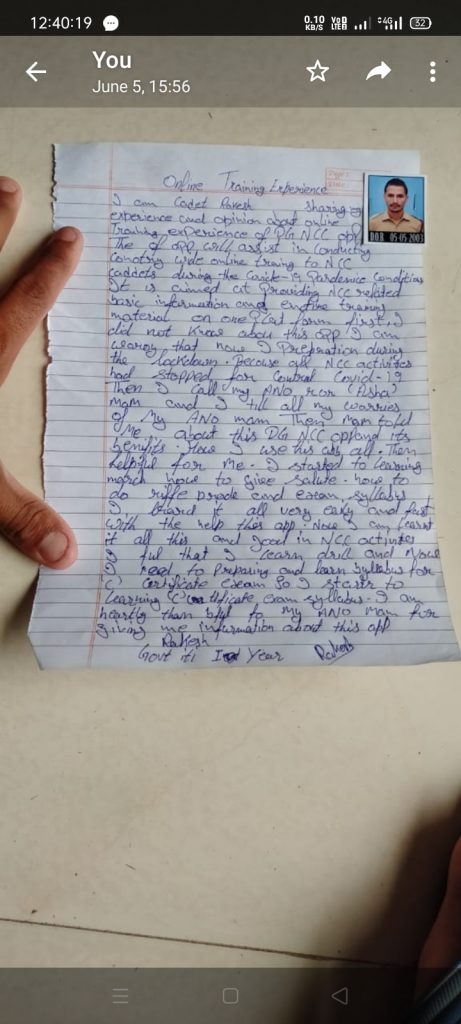 12:40:19
0.10 KB/S
VoD LTE2
4G
32
You
June 5, 15:56
Page:
Date:
Online Training Experience
I am Cadet Rakesh sharing
experience and opinion about online
Training experience of DG NCC app
The of app will assist in conducting
Conotry wide online traing to NCC
caddets during the Covid-19 Pardemic Conditions
It is aimed at Providing NCC related
basic information and entire traing
material on one Plat form first, I
did not know abou this app I am
wearoy that now I Prepration during
the lockdown. Because all NCC activites
had stopped for Control Covid-19
Then I Call my ANO (Asha)
mam and I till all my worries
of My ANO mam Then Mam told
Me about this DG NCC app and its
benifits. How I use this app all. Then
helpful for me. I started to learning
march how to Give Salute. how to
do riffe prade and exam, syllabus
I it all very easy and fast
with the help this app. Now I am learnt
it all this and good in NCC activites
I ful that I learn drill and Now
I read to Preparing and learn Syllabus for
(C) Certificate Exam So I starer to
learning (C) exam syllabus. I am
heartly than bful to My ANO Mam for
giving me information about this app
Rakesh
Govt iti Ist Year
Rakesh
DOB 05-05-2003